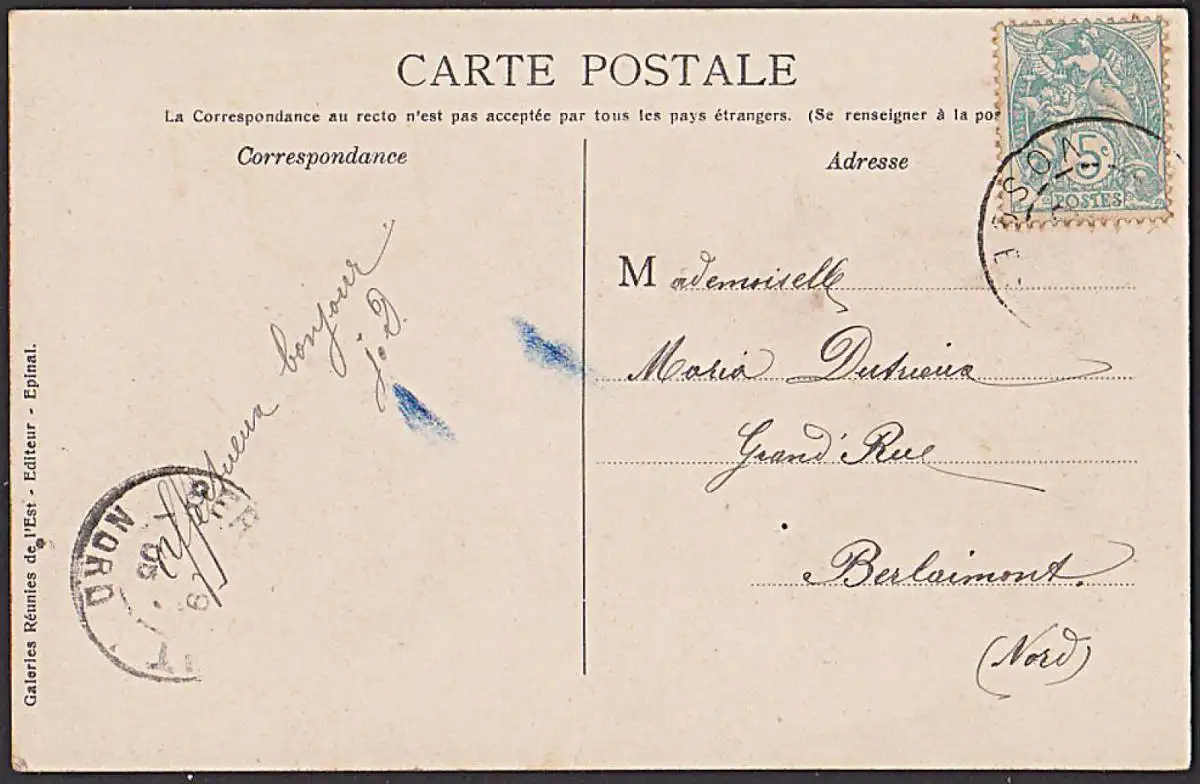 CARTE POSTALE
La Correspondance au recto n'est pas acceptée par tous les pays étrangers. (Se renseigner à la pos
Correspondance
Adresse
5c
POSTES
VOSGES
Mademoiselle
Maria Dutrieux
Grand'Rue
Berlaimont.
(Nord)
Affectueux bonjour
J. D.
NORD
Galeries Réunies de l'Est - Editeur - Epinal.